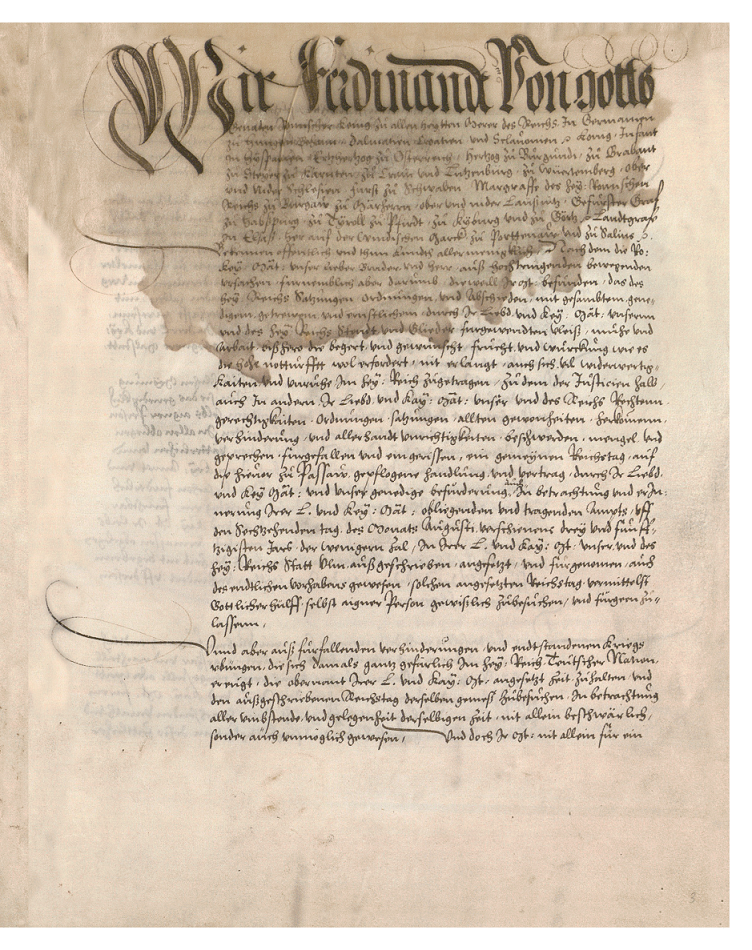 Wir Ferdinand Von gotts
genaden Römischer König zu allen zeytten Merer des Reichs In Germanien
zu Hungern Behaim Dalmatien Croatien und Sclavonien ꝛc König Infant
in Hispanien Ertzhertzog zu Osterreich Hertzog zu Burgundi zu Brabant
zu Steyr zu Kärnten zu Crain und Lutzenburg zu Würtemberg ober
und Nider Schlesien Fürst zu Schwaben Marggraffe des hey: Römischen
Reichs zu Burgaw zu Märhern ober und nider Lausnitz Gefürster Graf
zu Habspurg zu Tyroll zu Pfirdt zu Kyburg und zu Görtz Landtgraf
in Elsäß her auf der Windischen Marck zu Porttenaw und zu Salins ꝛc.
Bekennen offentlich und thun kundt allermenigklich Nach dem die Rö:
Key: Mät: unser lieber Bruder und herr auß hochtringenden bewegenden
ursachen fürnemblich aber darumb dieweill Ir Mt: befunden das des
hey: Reichs Satzungen Ordnungen und Abschieden mit gesambtem gene-
digem getrewem und ernstlichem durch Ir Liebd. und Key: Mät: unserm
und des hey: Reichs Stendt und Glieder fürgewendten vleiß mühe und
Arbait biß hero die begert und gewünscht frucht und würckung wie es
die hohe notturfft wol erfordert nit erlangt auch sich vil widerwertig-
kaiten und unruhe Im hey: Reich zugetragen zu dem der Justicien halb
auch In andern Ir Liebd und Kay: Mät: unser und des Reichs Rechten
gerechtigkaiten Ordnungen satzungen allten gewonheiten herkomenn
verhinderung und allerhandt unrichtigkeiten beschwerden mengel und
geprechen fürgefallen und eingerissen ein gemeynen Reichstag auf
die hievor zu Passaw gepflogene handlung und vertrag durch Ir Liebd.
und Key Mät: und unser genedige befürderung In betrachtung und erIn-
nerung Irer L. und Key: Mät: obligenden und tragenden Ampts uff
den Sechzehenden tag des Monats Augusti verschienens drey und fünff-
tzigisten Jars der wenigern zal In Irer L. und Kay: Mt: unser und des
hey: Reichs Statt Ulm außgeschrieben angesetzt und fürgenomen auch
des endtlichen vorhabens gewesen solchen angesetzten Reichstag vermittelst
Göttlicher hülff selbst aigner Person gewißlich zubesuchen und fürgeen zu-
lassenn
Unnd aber auß fürfallenden verhinderungen und endtstandenen Kriegs
übungen die sich damals gantz geferlich Im hey: Reich Teütscher Nation
ereugt die obernant Irer L. und Kay: Mt: angesetzt zeit zuhalten und
den außgeschriebenen Reichstag derselben gemeß zubesuchen In betrachtung
aller umbstende und gelegenheit derselbigen zeit nit allein beschwärlich
sonder auch unmöglich gewesen Und doch Ir Mt: nit allein für ein